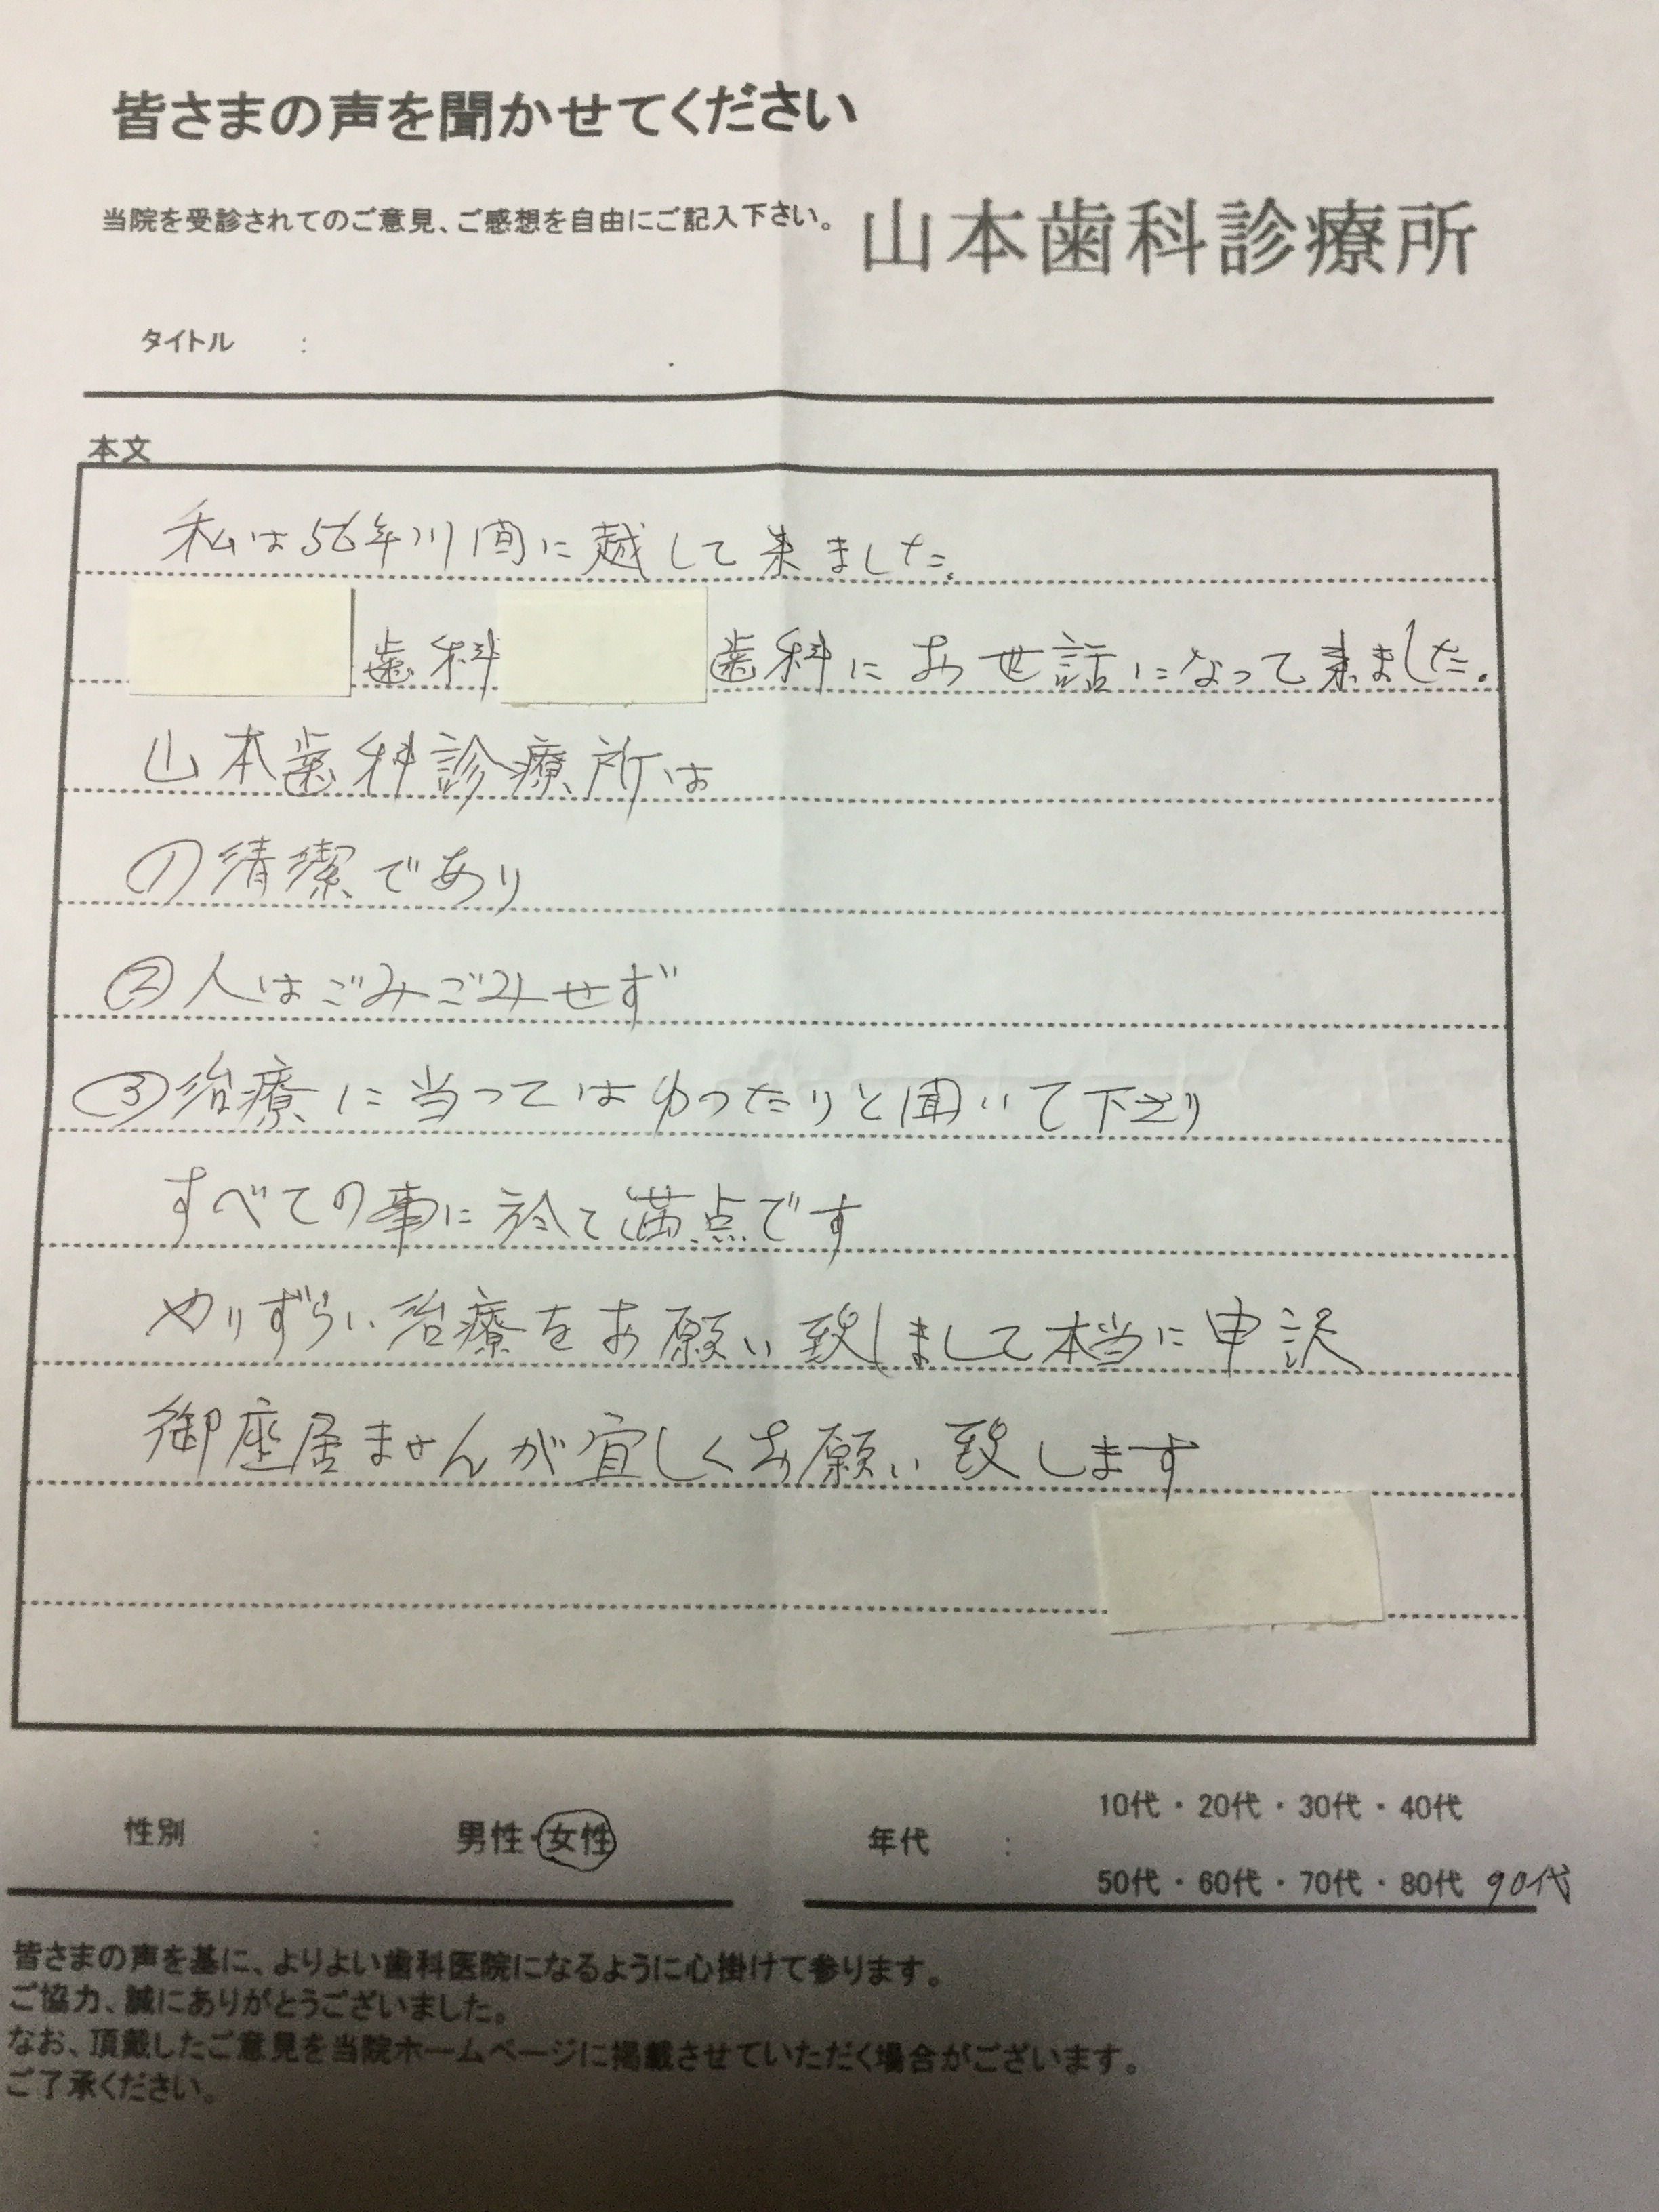 皆さまの声を聞かせてください
当院を受診されてのご意見、ご感想を自由にご記入下さい。
山本歯科診療所
タイトル :
本文
私は56年川間に越して来ました。
歯科 歯科にお世話になって来ました。
山本歯科診療所は
①清潔であり
②人はごみごみせず
③治療に当ってはゆったりと聞いて下さり
すべての事に於て満点です
やりずらい治療をお願い致しまして本当に申訳
御座居ませんが宜しくお願い致します
性別 : 男性・女性
年代 : 10代・20代・30代・40代
50代・60代・70代・80代 90代
皆さまの声を基に、よりよい歯科医院になるように心掛けて参ります。
ご協力、誠にありがとうございました。
なお、頂戴したご意見を当院ホームページに掲載させていただく場合がございます。
ご了承ください。